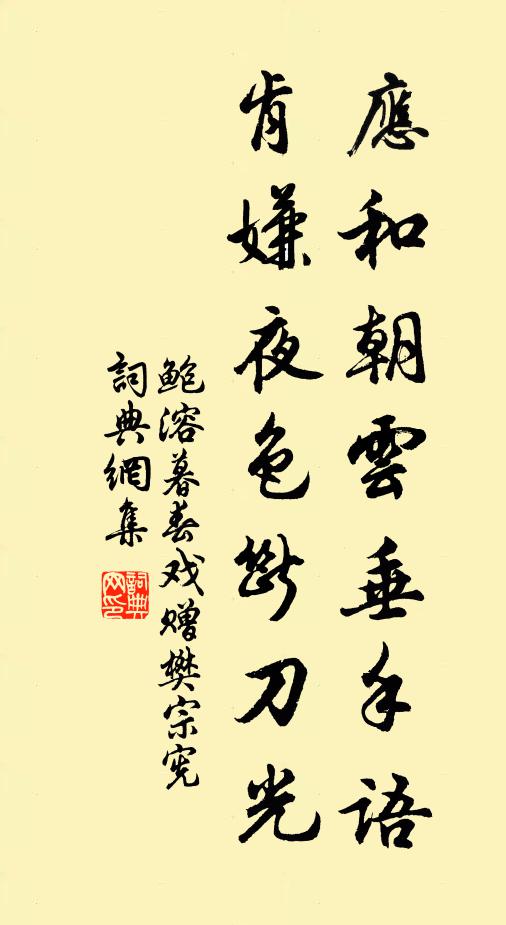 應和朝雲垂手語
肯嫌夜色斷刀光
鮑溶暮春戏赠樊宗宪
詞典網集
詞典网印